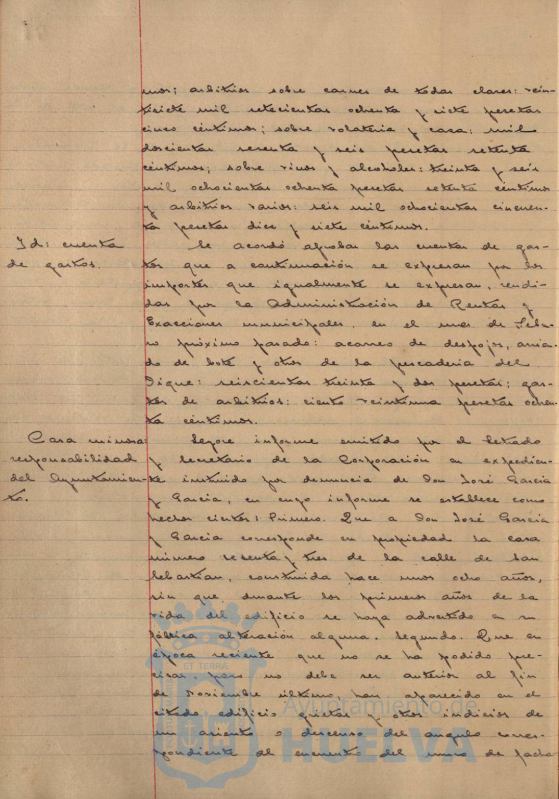 mos; arbitrios sobre carnes de todas clases: vein-
tisiete mil setecientas ochenta y siete pesetas
cinco céntimos; sobre volateria y caza: mil
doscientas sesenta y seis pesetas setenta
céntimos; sobre vinos y alcoholes: treinta y seis
mil ochocientas ochenta pesetas setenta céntimos
y arbitrios varios: seis mil ochocientas cincuen-
ta pesetas diez y siete céntimos.
Id: cuenta
de gastos.
Se acordó aprobar las cuentas de gas-
tos que a continuación se expresan por los
importes que igualmente se expresan, rendi-
das por la Administración de Rentas y
Exacciones municipales, en el mes de Febre-
ro próximo pasado: acarreo de despojos,
do de bote y otros de la pescaderia del
Dique: seiscientas treinta y dos pesetas; gas-
tos de arbitrios: ciento veintiuna pesetas ochen-
ta céntimos.
Casa
responsabilidad
del Ayuntamien-
to.
Leyose informe emitido por el Letrado
y Secretario de la Corporación en expedien-
te instruido por denuncia de Don José García
y García, en cuyo informe se establece como
hechos ciertos: Primero. Que a Don José García
y García corresponde en propiedad la casa
número sesenta y tres de la calle de San
Sebastián, construida hace unos ocho años,
sin que, durante los primeros años de la
vida del edificio se haya advertido en su
fábrica alteración alguna. Segundo. Que en
época reciente que no se ha podido pre-
cisar, pero no debe ser anterior al fin
de Noviembre último, han aparecido en el
citado edificio grietas y otros indicios de
un asiento o descenso del angulo corres-
pondiente al encuentro del muro de facha-
ET TERRÆ
Ayuntamiento de
HUELVA